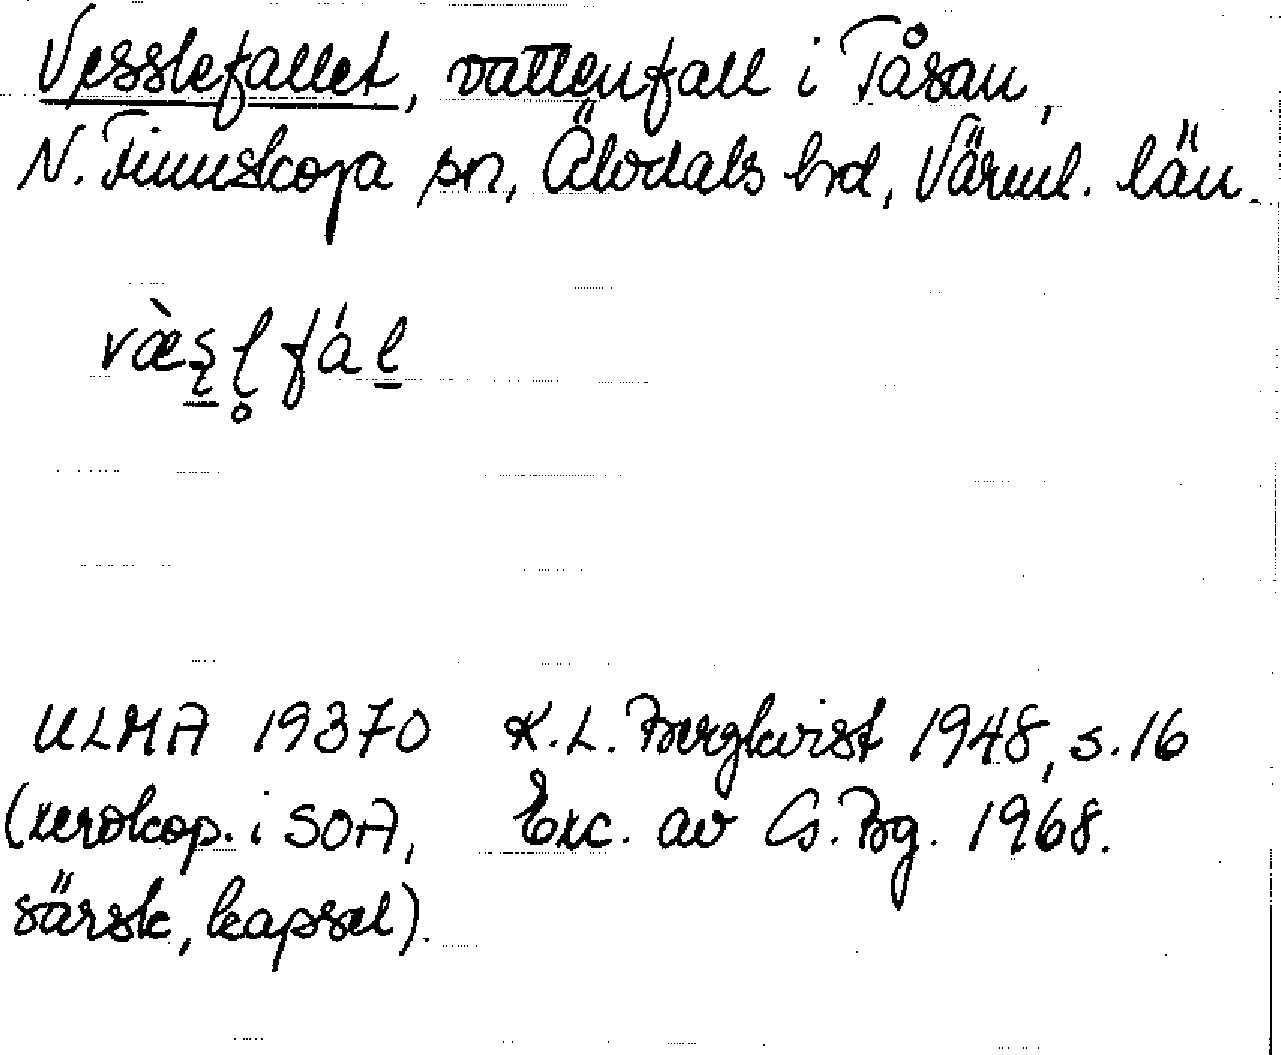 Vesslefallet, vattenfall i Tåsan,
N. Finnskoga sn, Älvdals hd, Värml. län.
væ̀s̨l̥fál
ULMA 19370 K.L. Bergkvist 1948, s. 16
(xerokop. i SOA, Exc. av G. Bg. 1968.
särsk, kapsel).